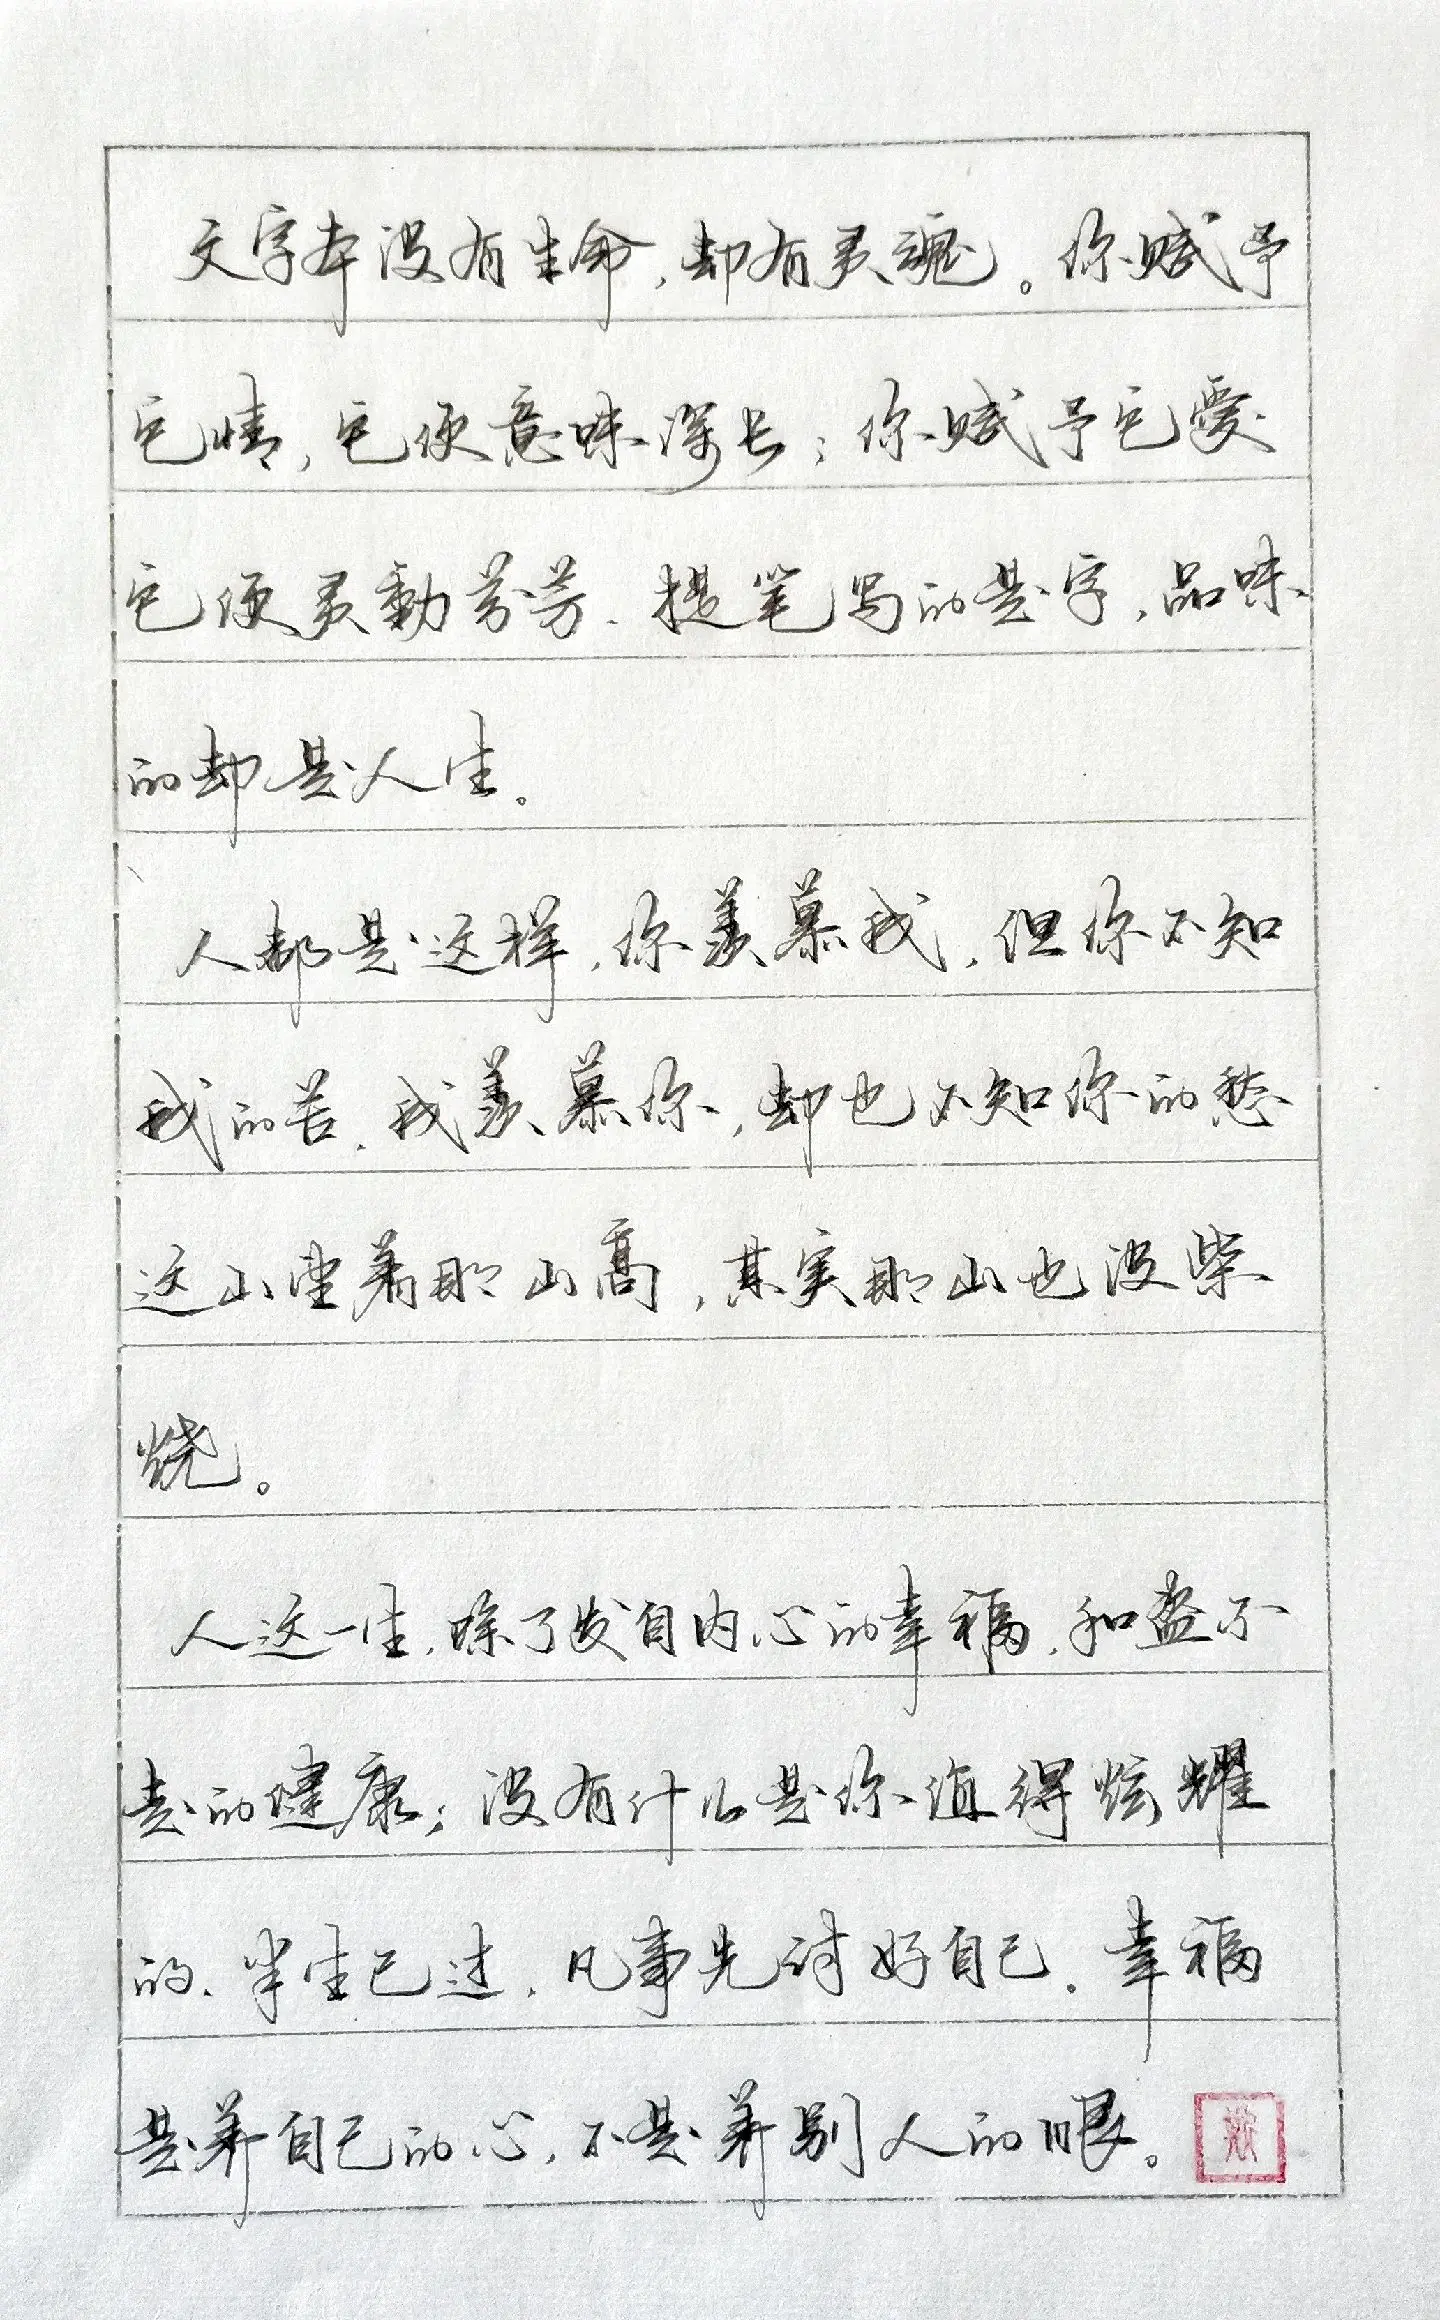 文字本没有生命,却有灵魂。你赋予
它情,它便意味深长;你赋予它爱
它便灵動芬芳.提笔写的是字,品味
的却是人生。
人都是这样,你羡慕我,但你不知
我的苦.我羡慕你,却也不知你的愁
这山望着那山高,其实那山也没柴
烧。
人这一生,除了发自内心的幸福.和盗不
走的健康;没有什么是你值得炫耀
的.半生已过,凡事先讨好自己.幸福
是养自己的心,不是养别人的眼。